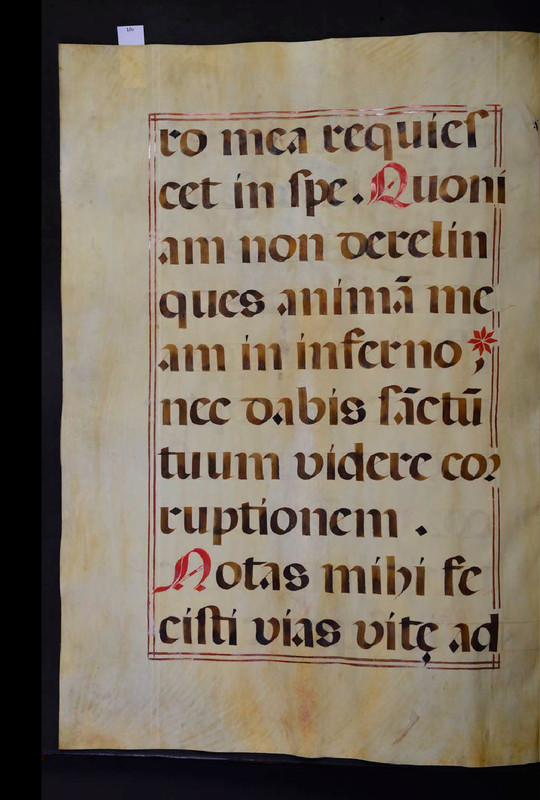 ro mea requieſ
cet in ſpe. Quoni
am non derelin
ques animā me
am in inferno,
nec dabis ſāctū
tuum videre coꝛ
ruptionem .
Notas mihi fe
ciſti vias vitę ad